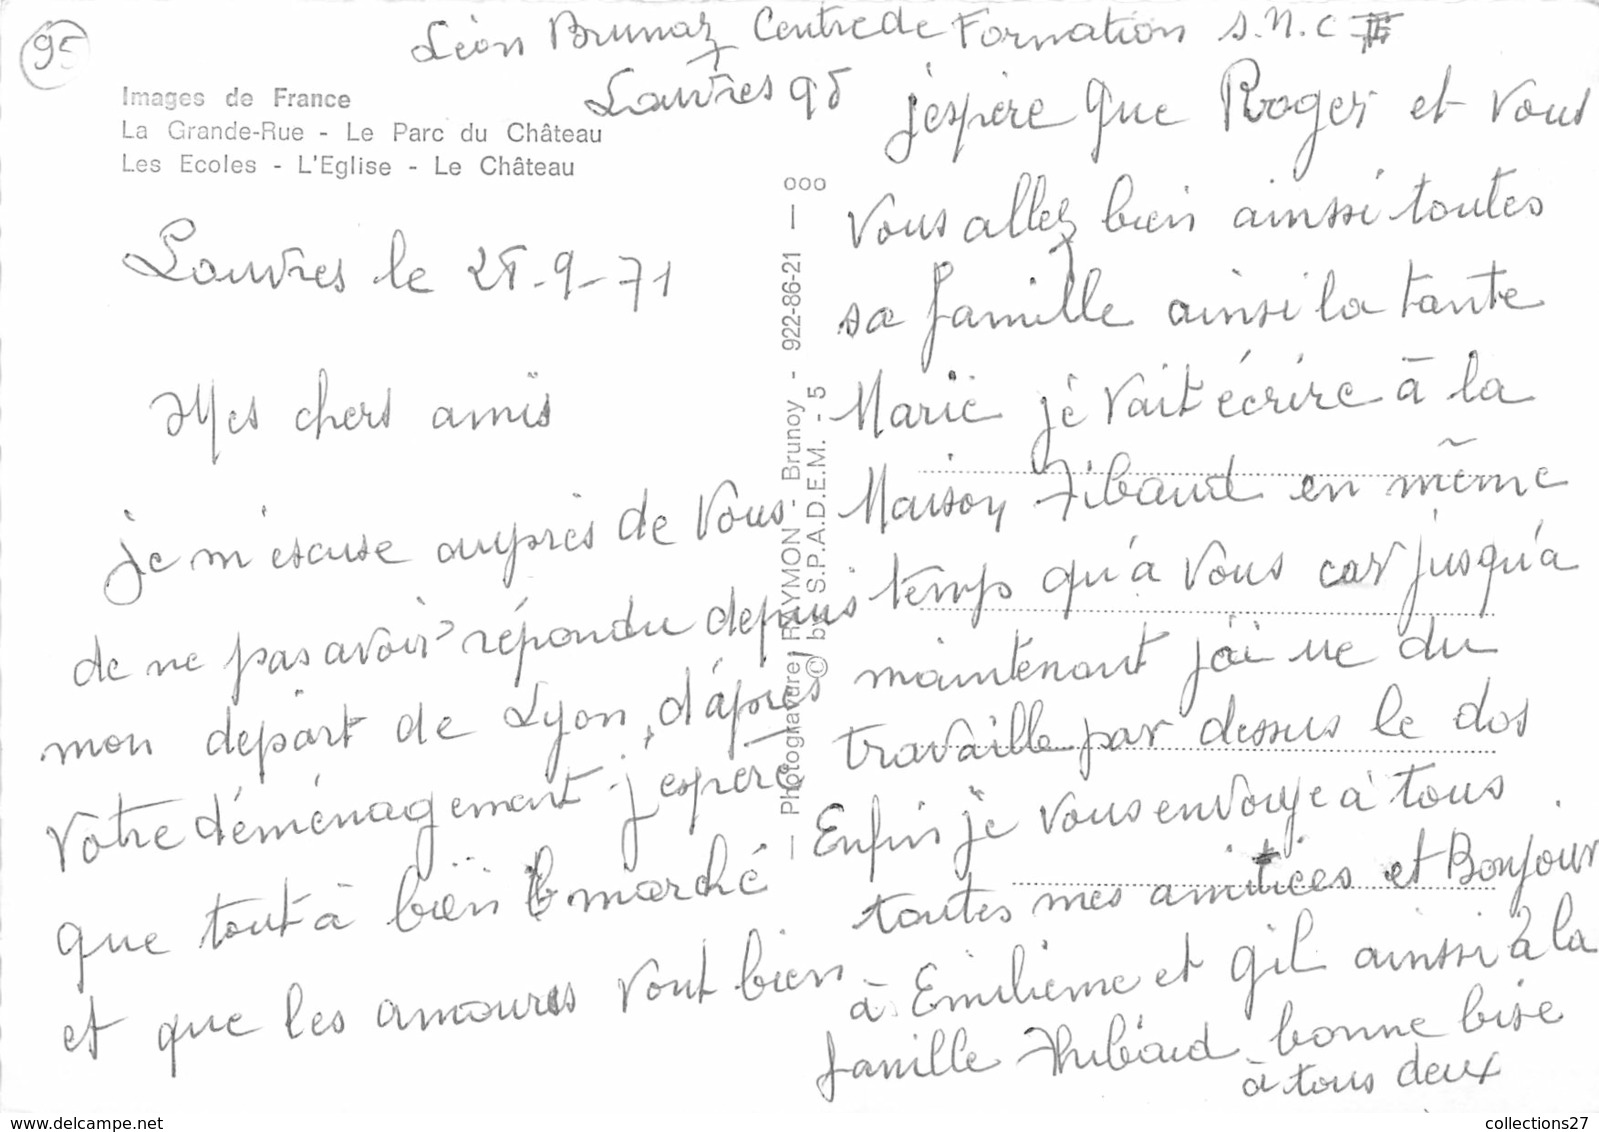 95
Léon Brunaz Centre de Formation S.N.C
Louvres 95
Images de France
La Grande-Rue - Le Parc du Château
Les Ecoles - L'Eglise - Le Château
Louvres le 25-9-71
Mes chers amis
je m'éscuse auprès de Vous
de ne pas avoir répondu depuis
mon départ de Lyon, d'après
Votre déménagement j'espère
que tout à bien marché
et que les amoures vont bien
ooo
Photogravure RAYMON - Brunoy - 922-86-21
© by S.P.A.D.E.M. - 5
j'espère que Roger et Vous
Vous allez bien ainssi toutes
sa famille ainsi la tante
Marie je vait écrire à la
Maison Tibaud en même
temps qu'à vous car jusqu'à
maintenant j'ai ue du
travaille par dessus le dos
Enfin je vous envoye à tous
toutes mes amitiées et Bonjour
à Emilienne et gil ainssi à la
famille Thibaud bonne bise
à tous deux
collections27